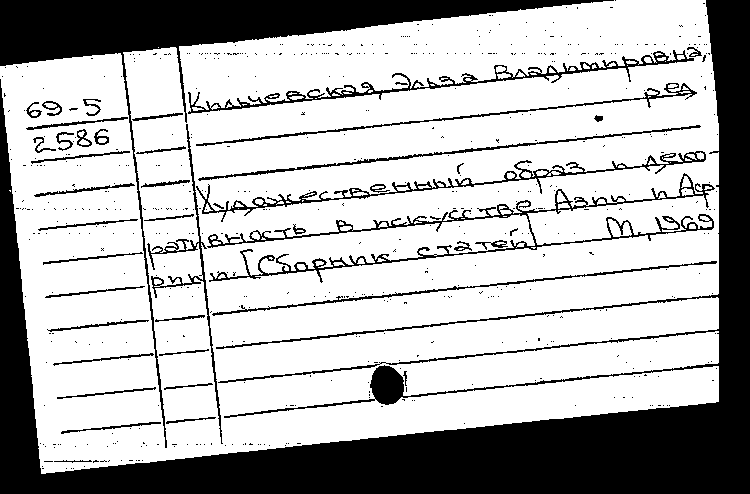 69-5
2586
Кильчевская, Эльза Владимировна,
ред.
Художественный образ и деко-
ративность в искусстве Азии и Аф-
рики. [Сборник статей]. М., 1969